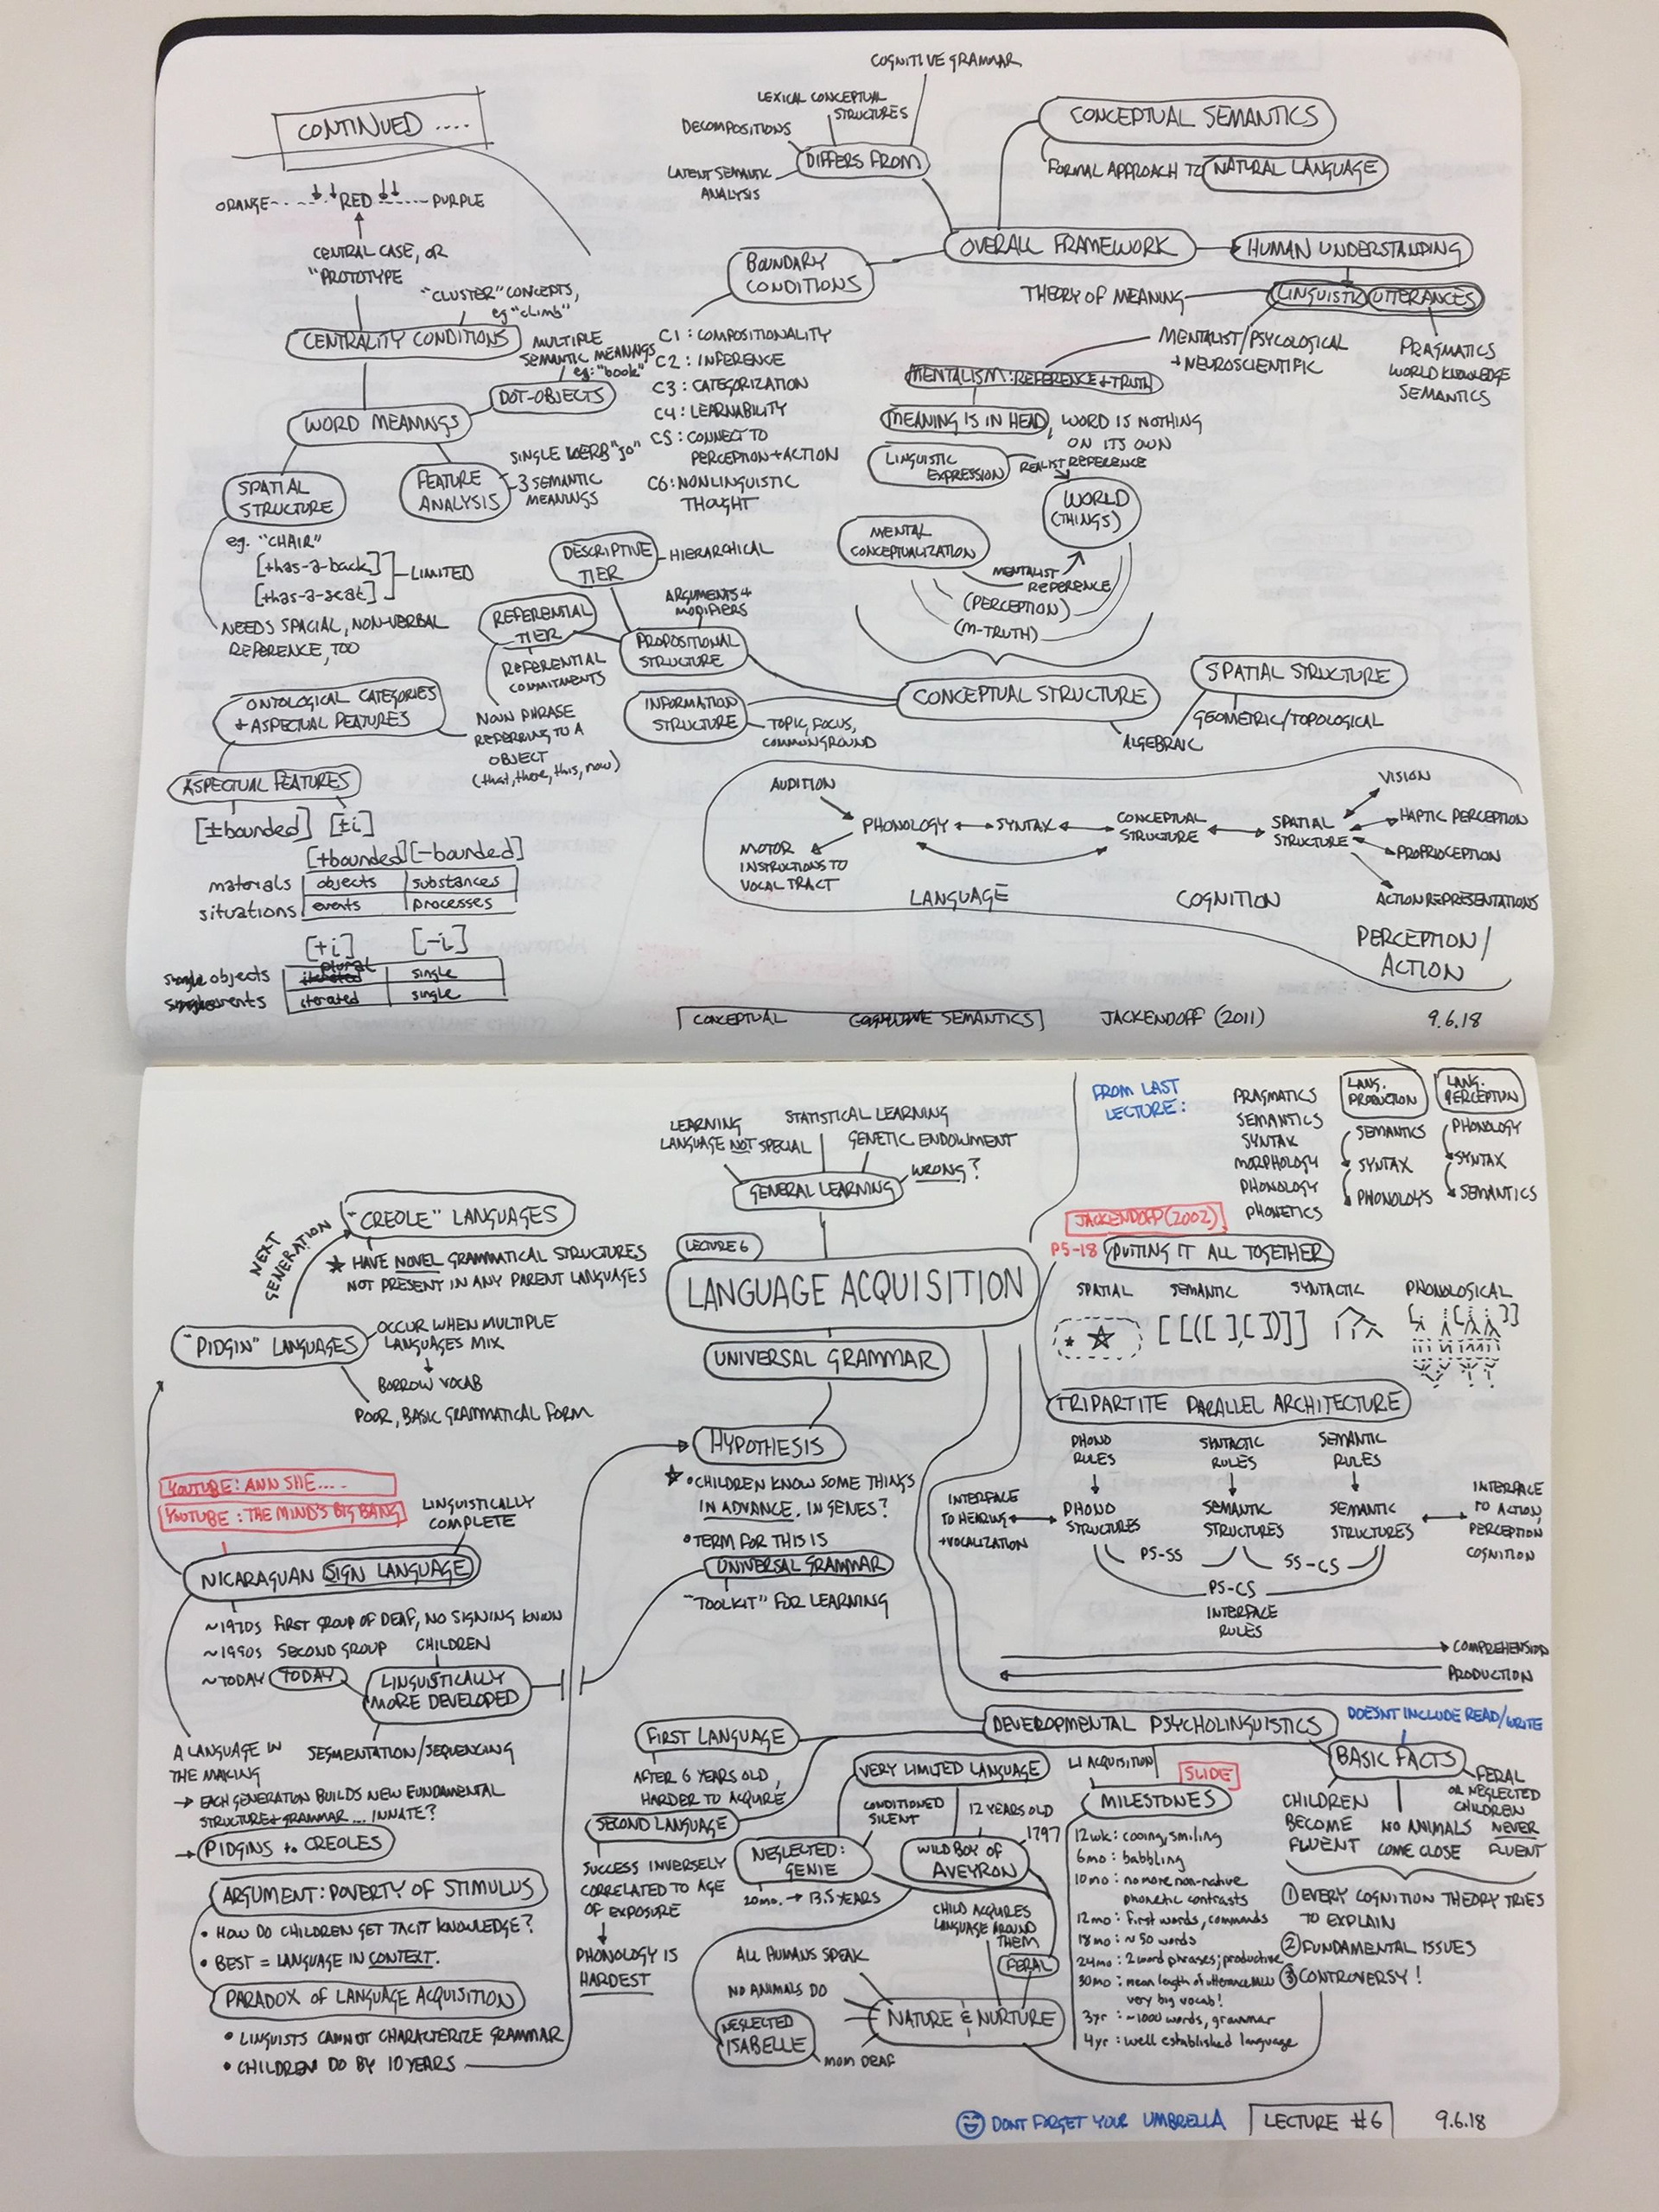 CONTINUED ....
ORANGE RED PURPLE
CENTRAL CASE, OR
"PROTOTYPE
"CLUSTER" CONCEPTS,
eg "climb"
CENTRALITY CONDITIONS
MULTIPLE
SEMANTIC MEANINGS
eg: "book"
DOT-OBJECTS
WORD MEANINGS
SPATIAL
STRUCTURE
FEATURE
ANALYSIS
SINGLE VERB "GO"
3 SEMANTIC
MEANINGS
eg. "CHAIR"
[+has-a-back]
[+has-a-seat]
LIMITED
NEEDS SPACIAL, NON-VERBAL
REFERENCE, TOO
ONTOLOGICAL CATEGORIES
+ ASPECTUAL FEATURES
ASPECTUAL FEATURES
[±bounded] [±i]
[+bounded] [-bounded]
materials objects substances
situations events processes
[+i] [-i]
objects plural single
events iterated single
COGNITIVE GRAMMAR
LEXICAL CONCEPTUAL
STRUCTURES
DECOMPOSITIONS
DIFFERS FROM
LATENT SEMANTIC
ANALYSIS
CONCEPTUAL SEMANTICS
FORMAL APPROACH TO NATURAL LANGUAGE
OVERALL FRAMEWORK
HUMAN UNDERSTANDING
BOUNDARY
CONDITIONS
C1: COMPOSITIONALITY
C2: INFERENCE
C3: CATEGORIZATION
C4: LEARNABILITY
C5: CONNECT TO
PERCEPTION + ACTION
C6: NONLINGUISTIC
THOUGHT
THEORY OF MEANING
LINGUISTIC UTTERANCES
MENTALIST/PSYCOLOGICAL
+ NEUROSCIENTIFIC
PRAGMATICS
WORLD KNOWLEDGE
SEMANTICS
MENTALISM: REFERENCE + TRUTH
MEANING IS IN HEAD, WORD IS NOTHING
ON ITS OWN
LINGUISTIC
EXPRESSION
REALIST REFERENCE
WORLD
(THINGS)
MENTAL
CONCEPTUALIZATION
MENTALIST
REFERENCE
(PERCEPTION)
(M-TRUTH)
DESCRIPTIVE
TIER
HIERARCHICAL
ARGUMENTS +
MODIFIERS
REFERENTIAL
TIER
PROPOSITIONAL
STRUCTURE
REFERENTIAL
COMMITMENTS
INFORMATION
STRUCTURE
TOPIC, FOCUS,
COMMON GROUND
NOUN PHRASE
REFERRING TO A
OBJECT
(that, there, this, now)
CONCEPTUAL STRUCTURE
SPATIAL STRUCTURE
GEOMETRIC/TOPOLOGICAL
ALGEBRAIC
AUDITION
PHONOLOGY
SYNTAX
CONCEPTUAL
STRUCTURE
SPATIAL
STRUCTURE
MOTOR
INSTRUCTIONS TO
VOCAL TRACT
VISION
HAPTIC PERCEPTION
PROPRIOCEPTION
ACTION REPRESENTATIONS
LANGUAGE
COGNITION
PERCEPTION/
ACTION
CONCEPTUAL COGNITIVE SEMANTICS JACKENDOFF (2011) 9.6.18
LEARNING
LANGUAGE NOT SPECIAL
STATISTICAL LEARNING
GENETIC ENDOWMENT
WRONG?
GENERAL LEARNING
LECTURE 6
LANGUAGE ACQUISITION
UNIVERSAL GRAMMAR
HYPOTHESIS
• CHILDREN KNOW SOME THINGS
IN ADVANCE. IN GENES?
• TERM FOR THIS IS
UNIVERSAL GRAMMAR
"TOOLKIT" FOR LEARNING
"CREOLE" LANGUAGES
NEXT
GENERATION
HAVE NOVEL GRAMMATICAL STRUCTURES
NOT PRESENT IN ANY PARENT LANGUAGES
"PIDGIN" LANGUAGES
OCCUR WHEN MULTIPLE
LANGUAGES MIX
BORROW VOCAB
POOR, BASIC GRAMMATICAL FORM
YOUTUBE: ANN SHE....
YOUTUBE: THE MIND'S BIG BANG
LINGUISTICALLY
COMPLETE
NICARAGUAN SIGN LANGUAGE
~1970s FIRST GROUP OF DEAF, NO SIGNING KNOWN
~1990s SECOND GROUP CHILDREN
~TODAY TODAY
LINGUISTICALLY
MORE DEVELOPED
A LANGUAGE IN
THE MAKING
SEGMENTATION/SEQUENCING
→ EACH GENERATION BUILDS NEW FUNDAMENTAL
STRUCTURE + GRAMMAR... INNATE?
→ PIDGINS to CREOLES
ARGUMENT: POVERTY OF STIMULUS
• HOW DO CHILDREN GET TACIT KNOWLEDGE?
• BEST = LANGUAGE IN CONTEXT.
PARADOX OF LANGUAGE ACQUISITION
• LINGUISTS CANNOT CHARACTERIZE GRAMMAR
• CHILDREN DO BY 10 YEARS
FROM LAST
LECTURE:
PRAGMATICS
SEMANTICS
SYNTAX
MORPHOLOGY
PHONOLOGY
PHONETICS
LANG.
PRODUCTION
SEMANTICS
SYNTAX
PHONOLOGY
LANG.
PERCEPTION
PHONOLOGY
SYNTAX
SEMANTICS
JACKENDOFF (2002)
P5-18 PUTTING IT ALL TOGETHER
SPATIAL SEMANTIC SYNTACTIC PHONOLOGICAL
[[([ ],[ ])]]
TRIPARTITE PARALLEL ARCHITECTURE
PHONO
RULES
SYNTACTIC
RULES
SEMANTIC
RULES
INTERFACE
TO HEARING
+ VOCALIZATION
PHONO
STRUCTURES
SEMANTIC
STRUCTURES
SEMANTIC
STRUCTURES
INTERFACE
TO ACTION,
PERCEPTION
COGNITION
PS-SS
SS-CS
PS-CS
INTERFACE
RULES
COMPREHENSION
PRODUCTION
DEVELOPMENTAL PSYCHOLINGUISTICS
DOESNT INCLUDE READ/WRITE
BASIC FACTS
CHILDREN
BECOME
FLUENT
NO ANIMALS
COME CLOSE
FERAL
OR NEGLECTED
CHILDREN
NEVER
FLUENT
① EVERY COGNITION THEORY TRIES
TO EXPLAIN
② FUNDAMENTAL ISSUES
③ CONTROVERSY!
FIRST LANGUAGE
AFTER 6 YEARS OLD,
HARDER TO ACQUIRE
SECOND LANGUAGE
SUCCESS INVERSELY
CORRELATED TO AGE
OF EXPOSURE
PHONOLOGY IS
HARDEST
VERY LIMITED LANGUAGE
CONDITIONED
SILENT
12 YEARS OLD
1797
NEGLECTED:
GENIE
20mo. → 13.5 YEARS
WILD BOY OF
AVEYRON
CHILD ACQUIRES
LANGUAGE AROUND
THEM
FERAL
ALL HUMANS SPEAK
NO ANIMALS DO
NATURE & NURTURE
NEGLECTED
ISABELLE
MOM DEAF
L1 ACQUISITION
SLIDE
MILESTONES
12wk: cooing, smiling
6mo: babbling
10mo: no more non-native
phonetic contrasts
12mo: first words, commands
18mo: ~50 words
24mo: 2 word phrases; productive
30mo: mean length of utterance
very big vocab!
3yr: ~1000 words, grammar
4yr: well established language
DONT FORGET YOUR UMBRELLA LECTURE #6 9.6.18